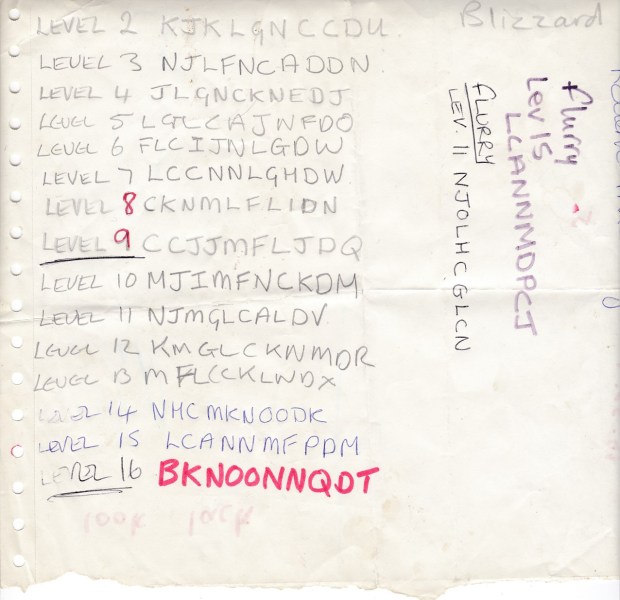 Blizzard
LEVEL 2 KJKLGNCCDU
LEVEL 3 NJLFNCADDN
LEVEL 4 JLGNCKNEDJ
LEVEL 5 LGLCAJNFDO
LEVEL 6 FLCIJNLGDW
LEVEL 7 LCCNNLGHDW
LEVEL 8 CKNMLFLIDN
LEVEL 9 CCJJMFLJDQ
LEVEL 10 MJIMFNCKDM
LEVEL 11 NJMGLCALDV
LEVEL 12 KMGLCKNMDR
LEVEL 13 MFLCCKLNDX
LEVEL 14 NHCMKNOODK
LEVEL 15 LCANNMFPDM
LEVEL 16 BKNOONNQDT
flurry
Lev 15
LCANNMDPCJ
FLURRY
LEV. 11 NJOLHCGLCN